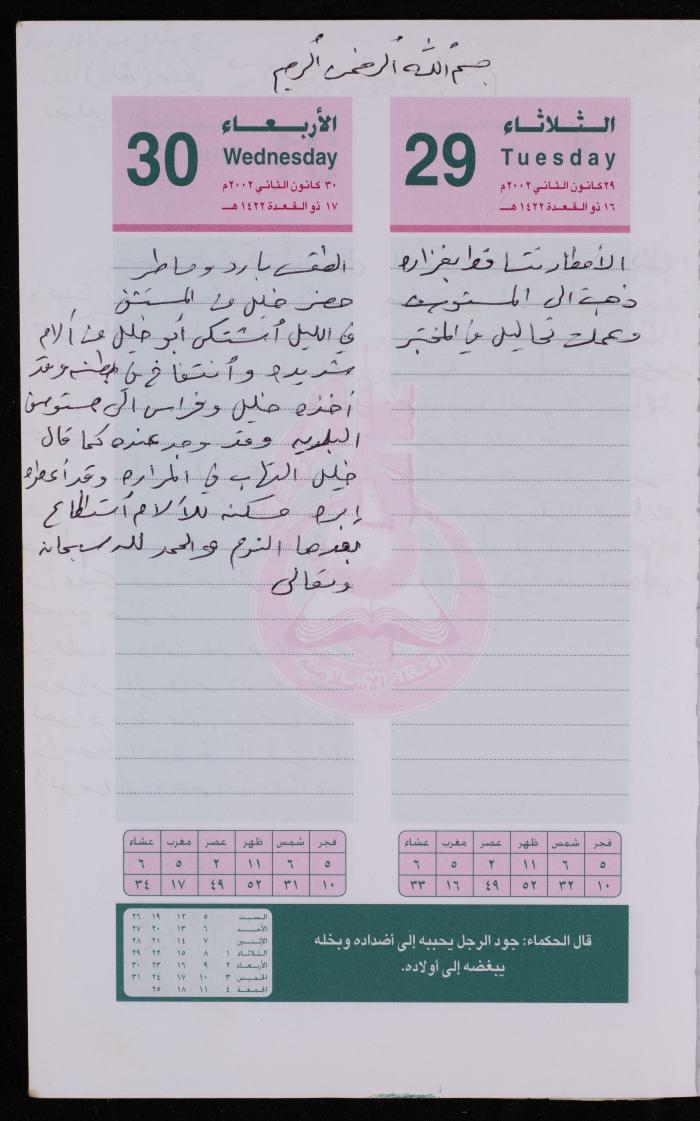 بسم الله الرحمن الرحيم
الثلاثاء
Tuesday
29
٢٩ كانون الثاني ٢٠٠٢م
١٦ ذو القعدة ١٤٢٢ هـ
الأمطار تتساقط بغزاره
ذهبت الى المستوصف
وعملت تحاليل في المختبر
فجر شمس ظهر عصر مغرب عشاء
٥ ٦ ١١ ٢ ٥ ٦
١٠ ٣٢ ٥٢ ٤٩ ١٦ ٣٣
الأربعاء
Wednesday
30
٣٠ كانون الثاني ٢٠٠٢م
١٧ ذو القعدة ١٤٢٢ هـ
الطقس بارد وماطر
حضر خليل من المستشفى
في الليل أشتكى أبو خليل من آلام
شديده وأنتفاخ في بطنه وقد
أخذه خليل وفراس الى مستوصف
البلديه وقد وجد عنده كما قال
خليل التهاب في المراره وقد أعطوه
إبره مسكنه للألام أستطاع
بعدها النوم والحمد لله سبحانه
وتعالى
فجر شمس ظهر عصر مغرب عشاء
٥ ٦ ١١ ٢ ٥ ٦
١٠ ٣١ ٥٢ ٤٩ ١٧ ٣٤
الكتلة الإسلامية
قال الحكماء: جود الرجل يحببه إلى أضداده وبخله
يبغضه إلى أولاده.
السبت ٥ ١٢ ١٩ ٢٦
الأحد ٦ ١٣ ٢٠ ٢٧
الإثنين ٧ ١٤ ٢١ ٢٨
الثلاثاء ١ ٨ ١٥ ٢٢ ٢٩
الأربعاء ٢ ٩ ١٦ ٢٣ ٣٠
الخميس ٣ ١٠ ١٧ ٢٤ ٣١
الجمعة ٤ ١١ ١٨ ٢٥